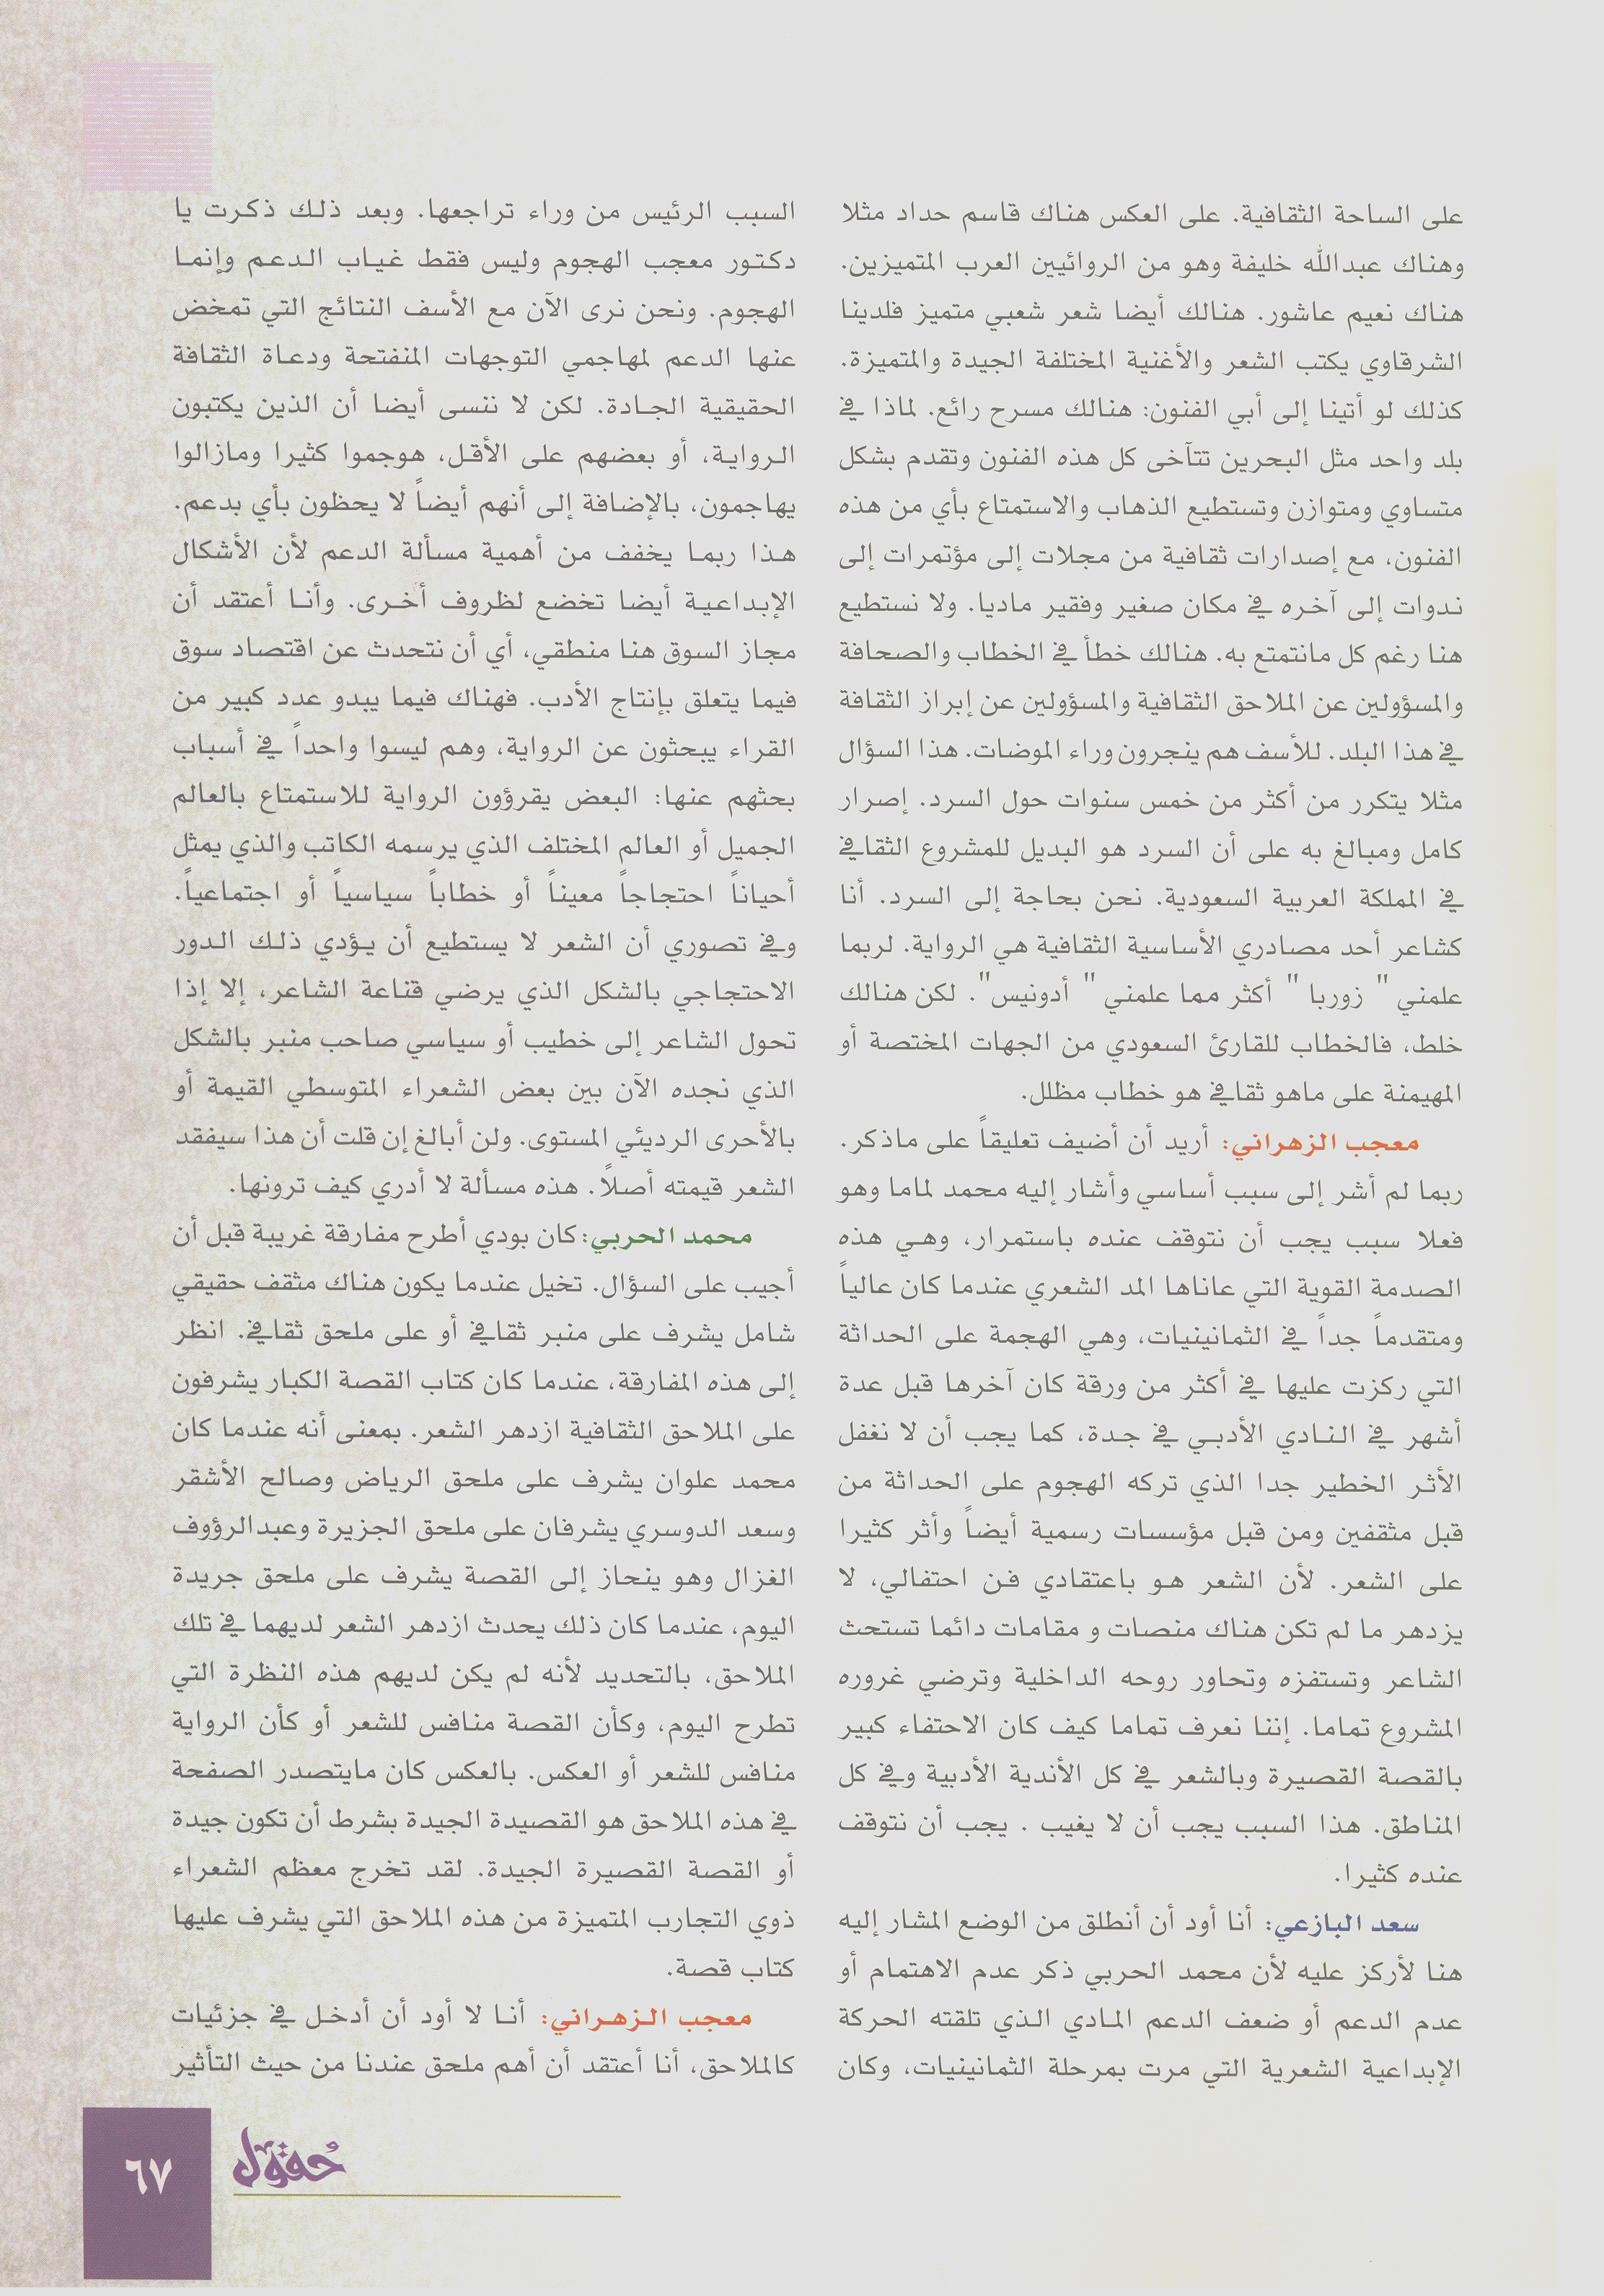 على الساحة الثقافية. على العكس هناك قاسم حداد مثلا
وهناك عبدالله خليفة وهو من الروائيين العرب المتميزين.
هناك نعيم عاشور. هنالك أيضا شعر شعبي متميز فلدينا
الشرقاوي يكتب الشعر والأغنية المختلفة الجيدة والمتميزة.
كذلك لو أتينا إلى أبي الفنون: هنالك مسرح رائع. لماذا في
بلد واحد مثل البحرين تتآخى كل هذه الفنون وتقدم بشكل
متساوي ومتوازن وتستطيع الذهاب والاستمتاع بأي من هذه
الفنون، مع إصدارات ثقافية من مجلات إلى مؤتمرات إلى
ندوات إلى آخره في مكان صغير وفقير ماديا. ولا نستطيع
هنا رغم كل مانتمتع به. هنالك خطأ في الخطاب والصحافة
والمسؤولين عن الملاحق الثقافية والمسؤولين عن إبراز الثقافة
في هذا البلد. للأسف هم ينجرون وراء الموضات. هذا السؤال
مثلا يتكرر من أكثر من خمس سنوات حول السرد. إصرار
كامل ومبالغ به على أن السرد هو البديل للمشروع الثقافي
في المملكة العربية السعودية. نحن بحاجة إلى السرد. أنا
كشاعر أحد مصادري الأساسية الثقافية هي الرواية. لربما
علمني " زوربا " أكثر مما علمني " أدونيس". لكن هنالك
خلط، فالخطاب للقارئ السعودي من الجهات المختصة أو
المهيمنة على ماهو ثقافي هو خطاب مظلل.
معجب الزهراني: أريد أن أضيف تعليقاً على ماذكر.
ربما لم أشر إلى سبب أساسي وأشار إليه محمد لماما وهو
فعلا سبب يجب أن نتوقف عنده باستمرار، وهي هذه
الصدمة القوية التي عاناها المد الشعري عندما كان عالياً
ومتقدماً جداً في الثمانينيات، وهي الهجمة على الحداثة
التي ركزت عليها في أكثر من ورقة كان آخرها قبل عدة
أشهر في النادي الأدبي في جدة، كما يجب أن لا نغفل
الأثر الخطير جدا الذي تركه الهجوم على الحداثة من
قبل مثقفين ومن قبل مؤسسات رسمية أيضاً وأثر كثيرا
على الشعر. لأن الشعر هو باعتقادي فن احتفالي، لا
يزدهر ما لم تكن هناك منصات و مقامات دائما تستحث
الشاعر وتستفزه وتحاور روحه الداخلية وترضي غروره
المشروع تماما. إننا نعرف تماما كيف كان الاحتفاء كبير
بالقصة القصيرة وبالشعر في كل الأندية الأدبية وفي كل
المناطق. هذا السبب يجب أن لا يغيب . يجب أن نتوقف
عنده كثيرا.
سعد البازعي: أنا أود أن أنطلق من الوضع المشار إليه
هنا لأركز عليه لأن محمد الحربي ذكر عدم الاهتمام أو
عدم الدعم أو ضعف الدعم المادي الذي تلقته الحركة
الإبداعية الشعرية التي مرت بمرحلة الثمانينيات، وكان
السبب الرئيس من وراء تراجعها. وبعد ذلك ذكرت يا
دكتور معجب الهجوم وليس فقط غياب الدعم وإنما
الهجوم. ونحن نرى الآن مع الأسف النتائج التي تمخض
عنها الدعم لمهاجمي التوجهات المنفتحة ودعاة الثقافة
الحقيقية الجادة. لكن لا ننسى أيضا أن الذين يكتبون
الرواية، أو بعضهم على الأقل، هوجموا كثيرا ومازالوا
يهاجمون، بالإضافة إلى أنهم أيضاً لا يحظون بأي بدعم.
هذا ربما يخفف من أهمية مسألة الدعم لأن الأشكال
الإبداعية أيضا تخضع لظروف أخرى. وأنا أعتقد أن
مجاز السوق هنا منطقي، أي أن نتحدث عن اقتصاد سوق
فيما يتعلق بإنتاج الأدب. فهناك فيما يبدو عدد كبير من
القراء يبحثون عن الرواية، وهم ليسوا واحداً في أسباب
بحثهم عنها: البعض يقرؤون الرواية للاستمتاع بالعالم
الجميل أو العالم المختلف الذي يرسمه الكاتب والذي يمثل
أحياناً احتجاجاً معيناً أو خطاباً سياسياً أو اجتماعياً.
وفي تصوري أن الشعر لا يستطيع أن يؤدي ذلك الدور
الاحتجاجي بالشكل الذي يرضي قناعة الشاعر، إلا إذا
تحول الشاعر إلى خطيب أو سياسي صاحب منبر بالشكل
الذي نجده الآن بين بعض الشعراء المتوسطي القيمة أو
بالأحرى الرديئي المستوى. ولن أبالغ إن قلت أن هذا سيفقد
الشعر قيمته أصلاً. هذه مسألة لا أدري كيف ترونها.
محمد الحربي: كان بودي أطرح مفارقة غريبة قبل أن
أجيب على السؤال. تخيل عندما يكون هناك مثقف حقيقي
شامل يشرف على منبر ثقافي أو على ملحق ثقافي. انظر
إلى هذه المفارقة، عندما كان كتاب القصة الكبار يشرفون
على الملاحق الثقافية ازدهر الشعر. بمعنى أنه عندما كان
محمد علوان يشرف على ملحق الرياض وصالح الأشقر
وسعد الدوسري يشرفان على ملحق الجزيرة وعبدالرؤوف
الغزال وهو ينحاز إلى القصة يشرف على ملحق جريدة
اليوم، عندما كان ذلك يحدث ازدهر الشعر لديهما في تلك
الملاحق، بالتحديد لأنه لم يكن لديهم هذه النظرة التي
تطرح اليوم، وكأن القصة منافس للشعر أو كأن الرواية
منافس للشعر أو العكس. بالعكس كان مايتصدر الصفحة
في هذه الملاحق هو القصيدة الجيدة بشرط أن تكون جيدة
أو القصة القصيرة الجيدة. لقد تخرج معظم الشعراء
ذوي التجارب المتميزة من هذه الملاحق التي يشرف عليها
كتاب قصة.
معجب الزهراني: أنا لا أود أن أدخل في جزئيات
كالملاحق، أنا أعتقد أن أهم ملحق عندنا من حيث التأثير
حقول
٦٧